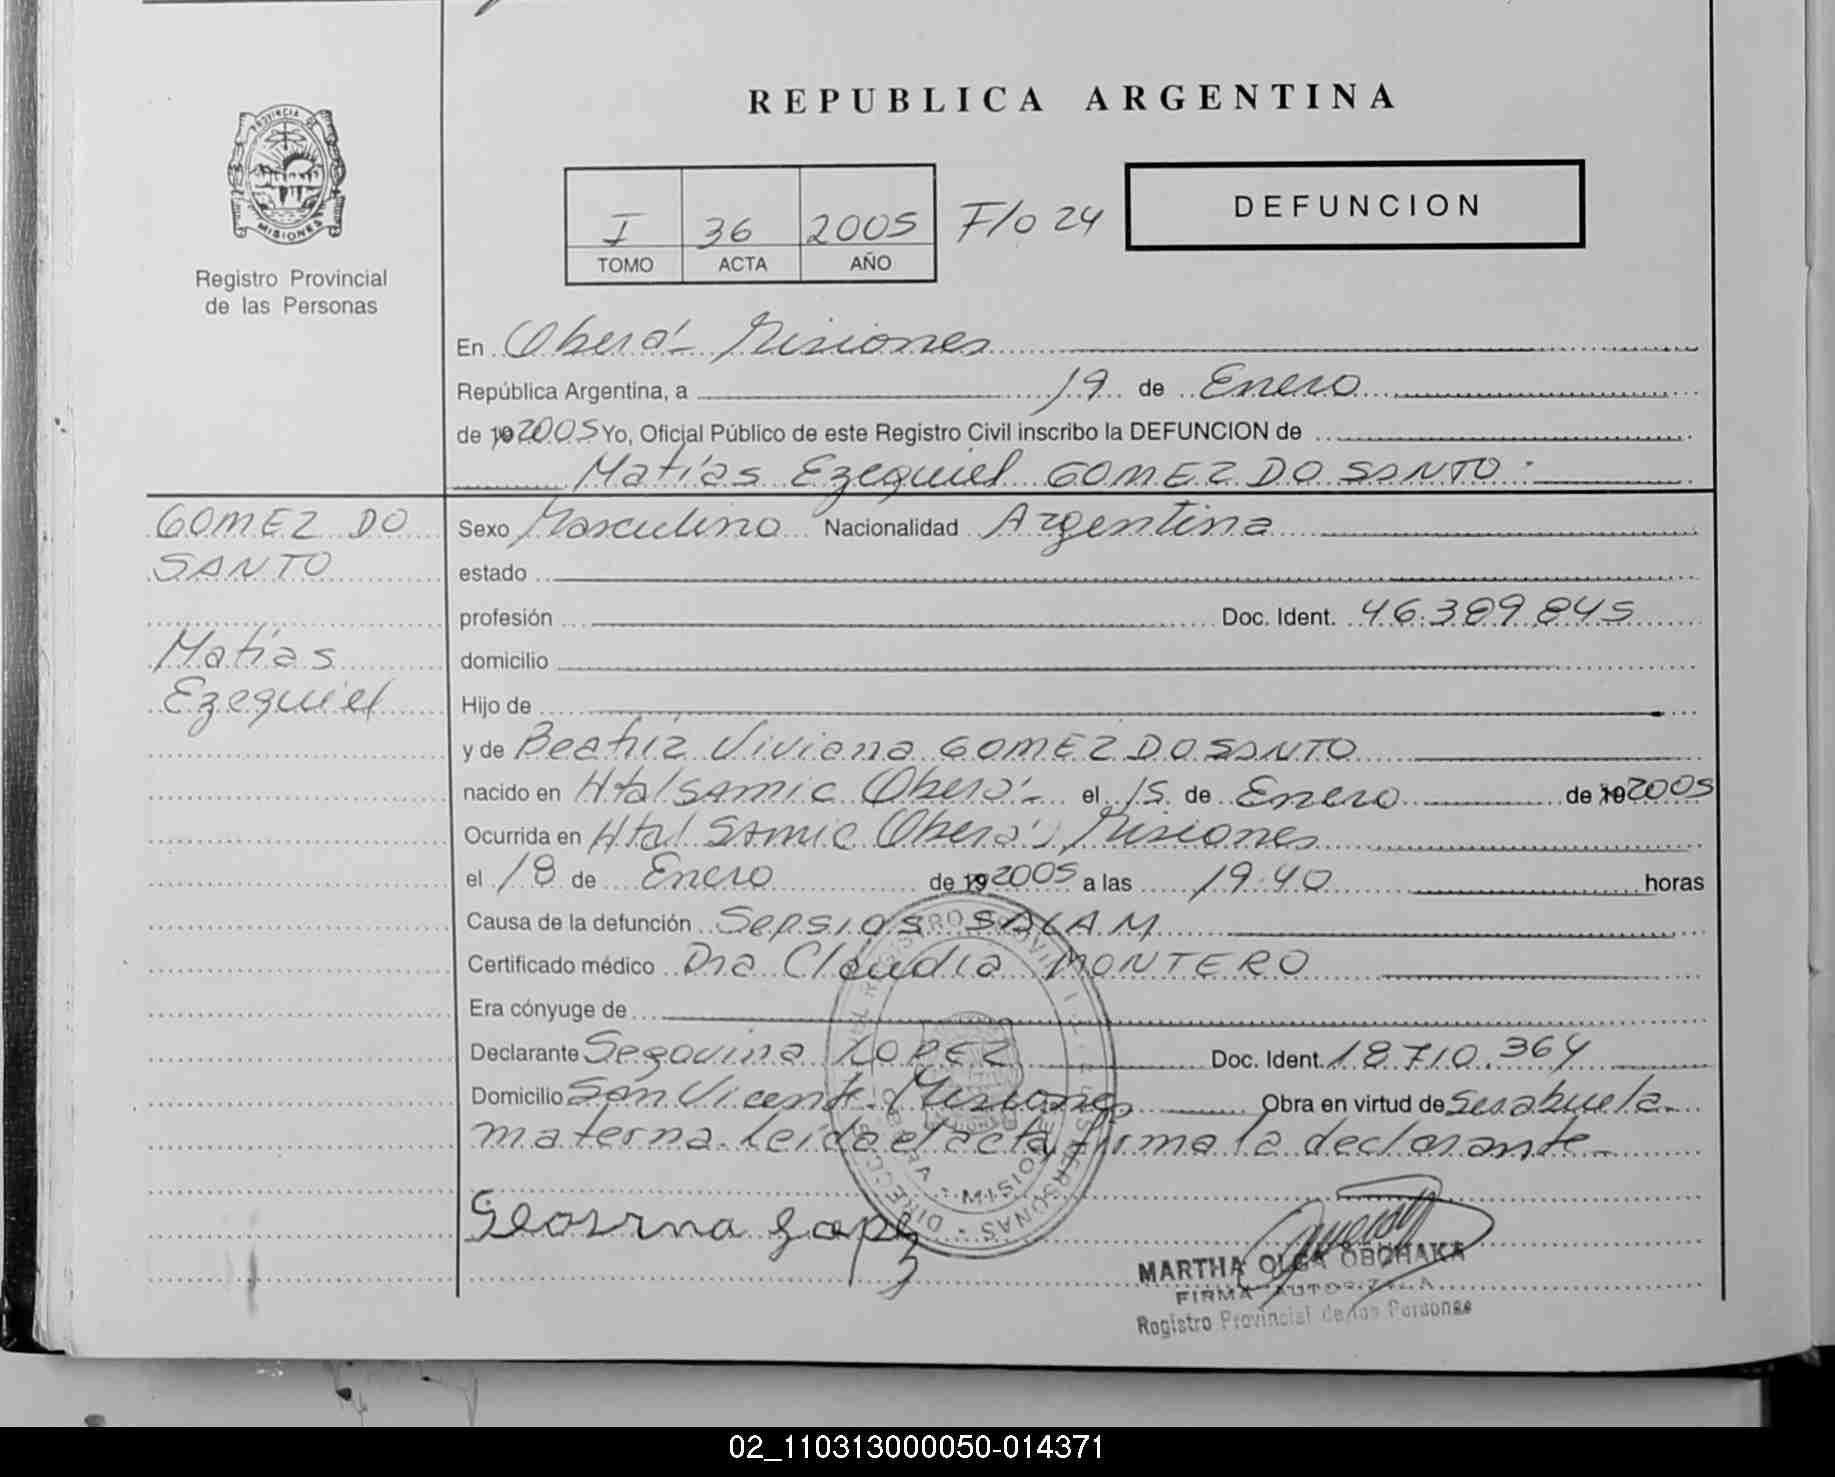 REPUBLICA ARGENTINA
PROVINCIA DE
MISIONES
Registro Provincial
de las Personas
I 36 2005 F/o 24
TOMO ACTA AÑO
DEFUNCION
En Oberá - Misiones
República Argentina, a 19 de Enero
de 19 2005 Yo, Oficial Público de este Registro Civil inscribo la DEFUNCION de
Matías Ezequiel GOMEZ DO SANTO
GOMEZ DO
SANTO
Matías
Ezequiel
Sexo Masculino Nacionalidad Argentina
estado
profesión Doc. Ident. 46.389.845
domicilio
Hijo de
y de Beatriz Viviana GOMEZ DO SANTO
nacido en Htal SAMIC Oberá - el 15 de Enero de 19 2005
Ocurrida en Htal SAMIC Oberá, Misiones
el 18 de Enero de 19 2005 a las 19.40 horas
Causa de la defunción
Certificado médico Dra Claudia MONTERO
Era cónyuge de
Declarante Segovina LOPEZ Doc. Ident. 18.710.364
Domicilio San Vicente - Misiones Obra en virtud de ser abuela
materna. Leída el acta, firma la declarante -
MARTHA OLGA OBCHAKA
FIRMA AUTORIZADA
Registro Provincial de las Personas
02_110313000050-014371